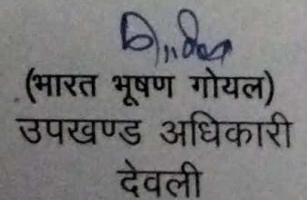 (भारत भूषण गोयल)
उपखण्ड अधिकारी
देवली